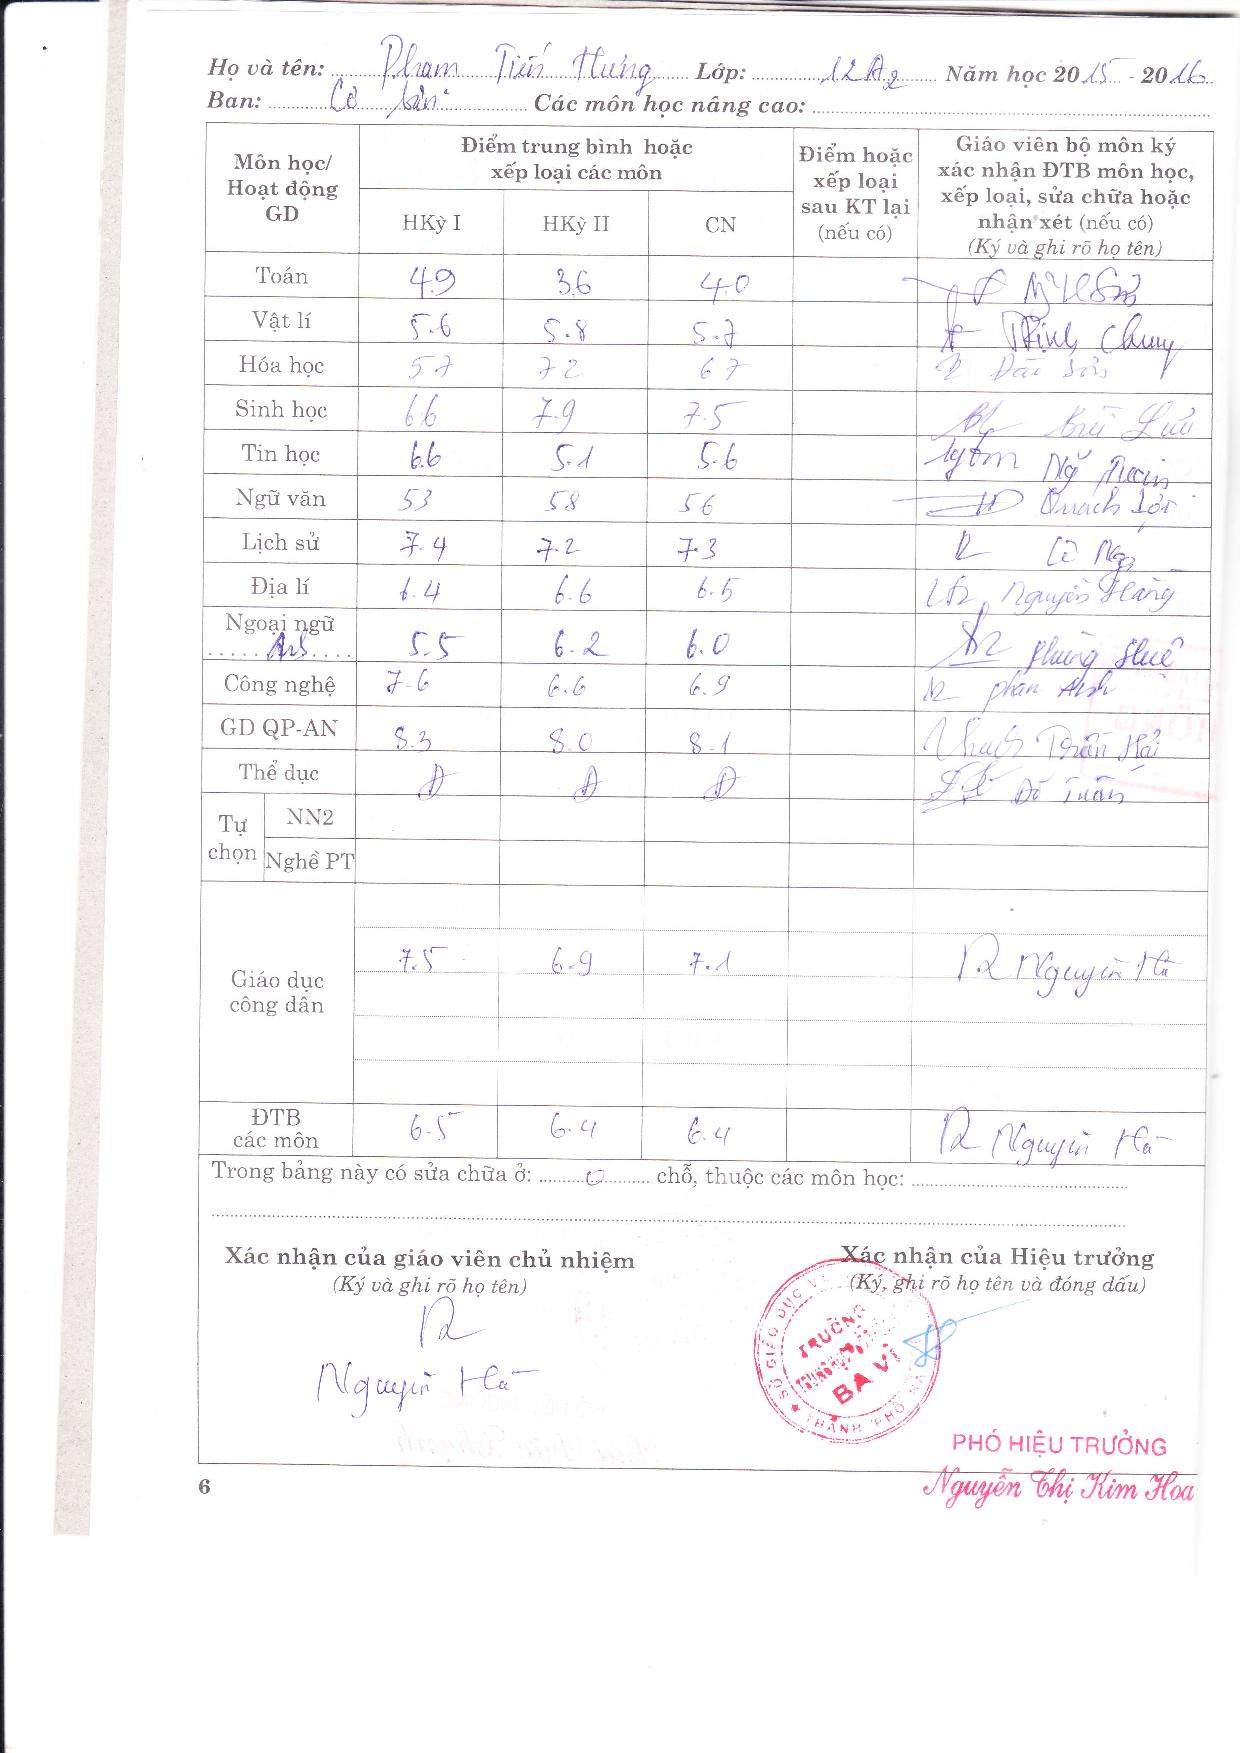 Họ và tên: Phạm Tiến Hưng Lớp: 12A2 Năm học 2015 - 2016
Ban: Cơ bản Các môn học nâng cao:
Môn học/ Hoạt động GD
Điểm trung bình hoặc xếp loại các môn
HKỳ I HKỳ II CN
Điểm hoặc xếp loại sau KT lại (nếu có)
Giáo viên bộ môn ký xác nhận ĐTB môn học, xếp loại, sửa chữa hoặc nhận xét (nếu có) (Ký và ghi rõ họ tên)
Toán 4.9 3.6 4.0
Vật lí 5.6 5.8 5.7 Trịnh Chung
Hóa học 5.7 7.2 6.7
Sinh học 6.6 7.9 7.5
Tin học 6.6 5.1 5.6
Ngữ văn 5.3 5.8 5.6 Quách
Lịch sử 7.4 7.2 7.3 Lê Nga
Địa lí 6.4 6.6 6.5 Nguyễn Hằng
Ngoại ngữ Anh 5.5 6.2 6.0 Phùng Huê
Công nghệ 7.6 6.6 6.9 Phan Anh
GD QP-AN 8.3 8.0 8.1 Trần Hải
Thể dục Đ Đ Đ Đỗ Tuấn
Tự chọn
NN2
Nghề PT
Giáo dục công dân 7.5 6.9 7.1 Nguyễn Hà
ĐTB các môn 6.5 6.4 6.4 Nguyễn Hà
Trong bảng này có sửa chữa ở: 0 chỗ, thuộc các môn học:
Xác nhận của giáo viên chủ nhiệm
(Ký và ghi rõ họ tên)
Nguyễn Hà
Xác nhận của Hiệu trưởng
(Ký, ghi rõ họ tên và đóng dấu)
SỞ GIÁO DỤC VÀ
TRƯỜNG
BA VÌ
THÀNH PHỐ HÀ
PHÓ HIỆU TRƯỞNG
Nguyễn Thị Kim Hoa
6